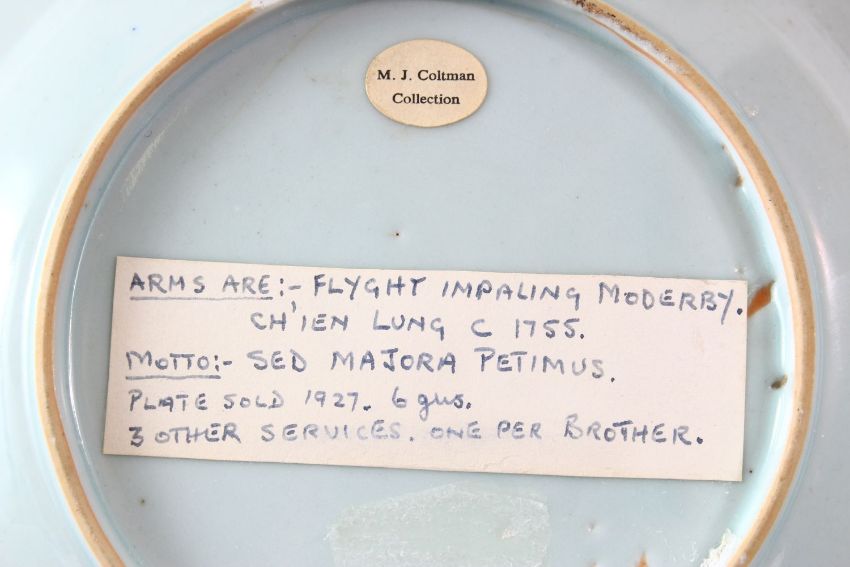 M. J. Coltman
Collection
ARMS ARE:- FLYGHT IMPALING MODERBY.
CH'IEN LUNG C 1755.
MOTTO:- SED MAJORA PETIMUS.
PLATE SOLD 1927. 6 gns.
3 OTHER SERVICES. ONE PER BROTHER.